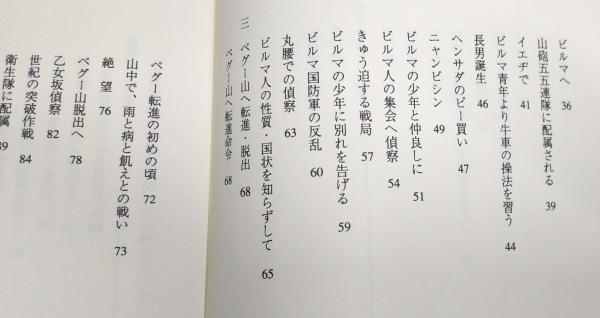 ビルマへ 36
山砲五五連隊に配属される 39
イエヂで 41
ビルマ青年より牛車の操法を習う 44
長男誕生 46
ヘンサダのビー買い 47
ニャンビシン 49
ビルマの少年と仲良しに 51
ビルマ人の集会へ偵察 54
きゅう迫する戦局 57
ビルマの少年に別れを告げる 59
ビルマ国防軍の反乱 60
丸腰での偵察 63
ビルマ人の性質・国状を知らずして 65
三 ペグー山へ転進・脱出 68
ペグー山へ転進命令 68
ペグー転進の初めの頃 72
山中で、雨と病と飢えとの戦い 73
絶望 76
ペグー山脱出へ 78
乙女坂偵察 82
世紀の突破作戦 84
衛生隊に配属 89